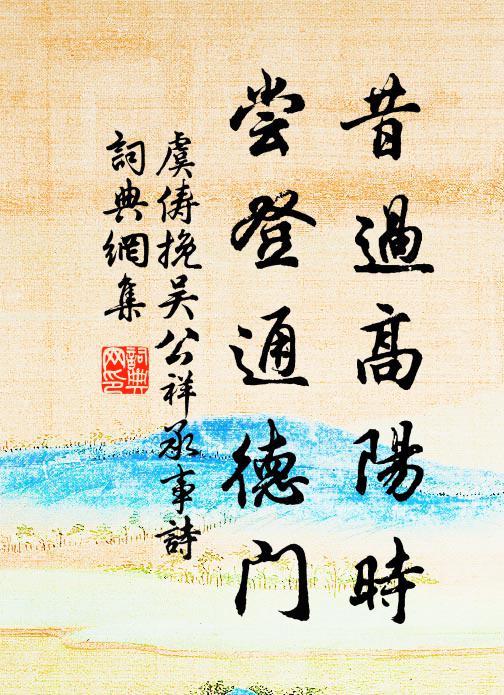 昔過高陽時
嘗登通德門
虞儔挽吳公祥承事詩
詞典網集
詞典
网印